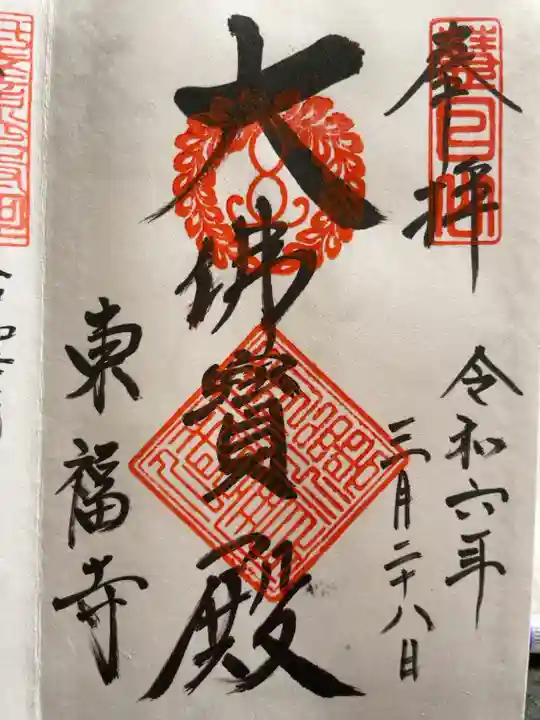 奉拝
令和六年
三月二十八日
大佛寳殿
東福寺